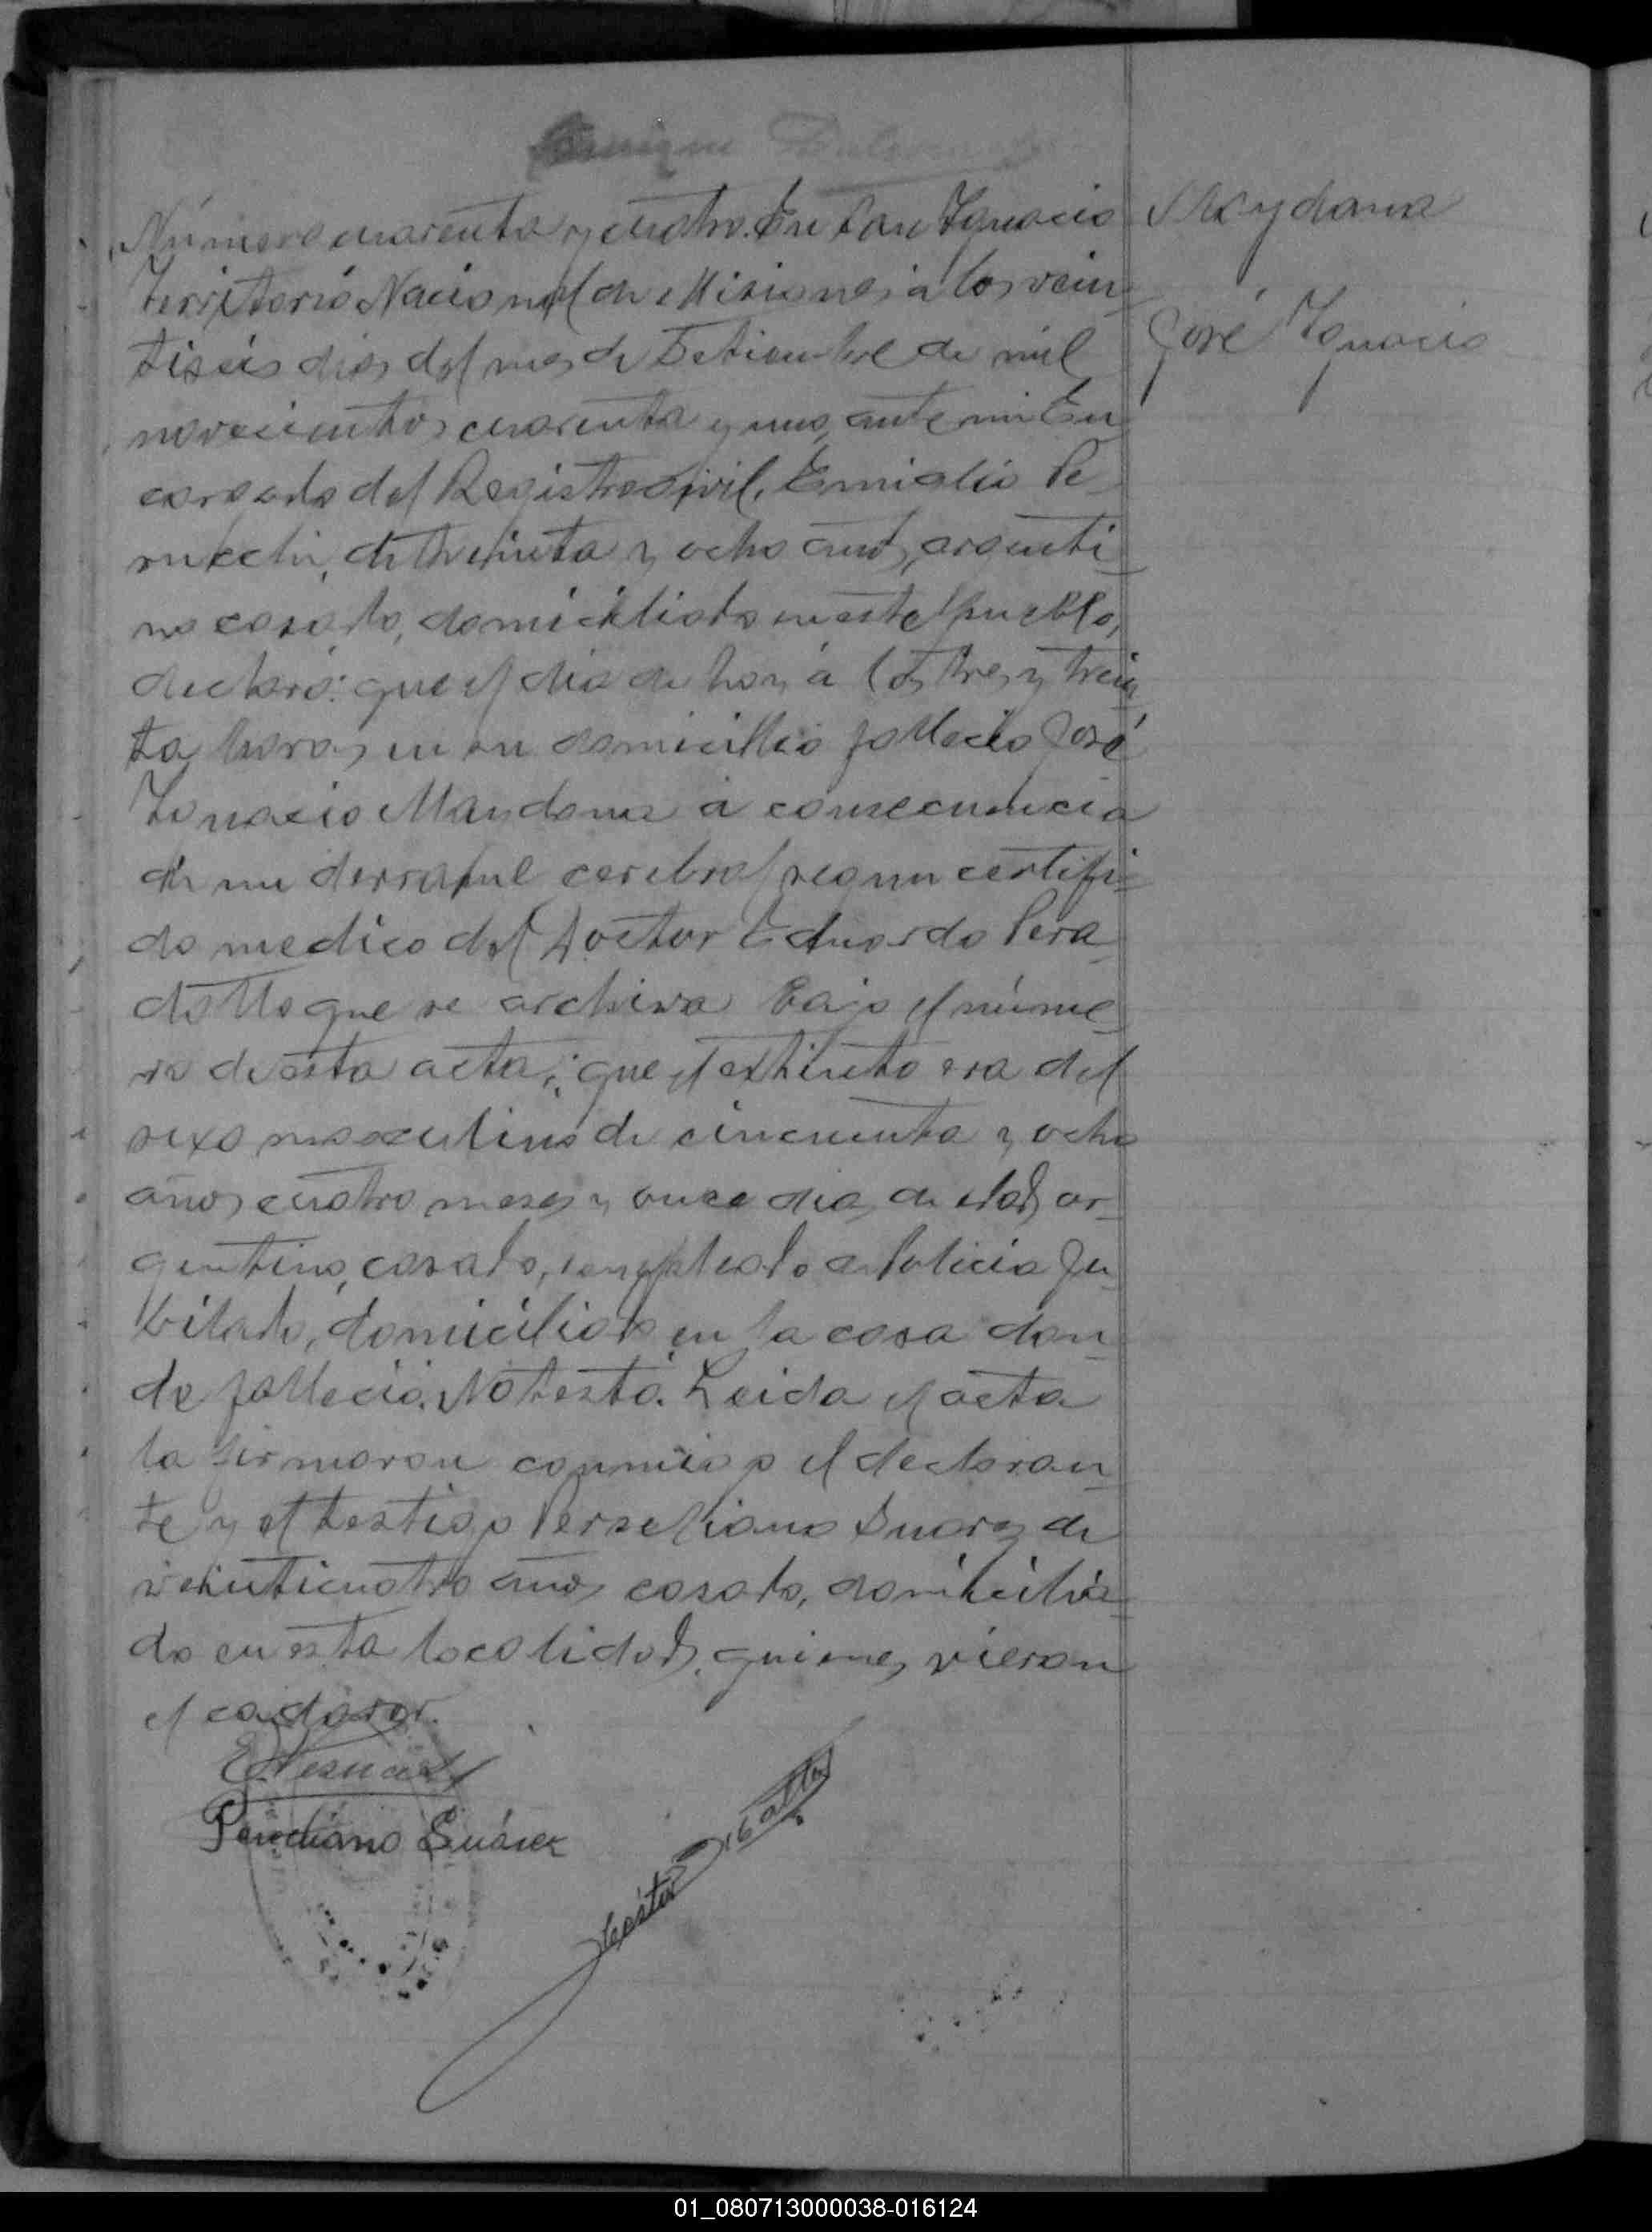 Enrique
Número cuarenta y cuatro. En San Ignacio
Territorio Nacional de Misiones a los vein
tiseis dias del mes de Setiembre de mil
novecientos cuarenta y uno, ante mi En
cargado del Registro Civil, Emiglio Pe
de treinta y ocho años, argenti
no casado, domiciliado en este pueblo,
declaró: que el dia de hoy a las tres y trein
ta horas en su domicilio falleció José
Ignacio Maydana a consecuencia
de un derrame cerebral segun certifi
do medico del Doctor Eduardo Pera
dotto que se archiva bajo el núme
ro de esta acta; que el extinto era del
sexo masculino de cincuenta y ocho
años cuatro meses y once dias de edad, ar
gentino, casado, empleado de Policia Ju
bilado, domiciliado en la casa don
de falleció. No testó. Leida el acta
la firmaron conmigo el declaran
te y el testigo Perseliano Suarez de
veinticuatro años casado, domicilia
do en esta localidad, quienes vieron
el cadaver.
Suárez
Maydana
José Ignacio
01_080713000038-016124